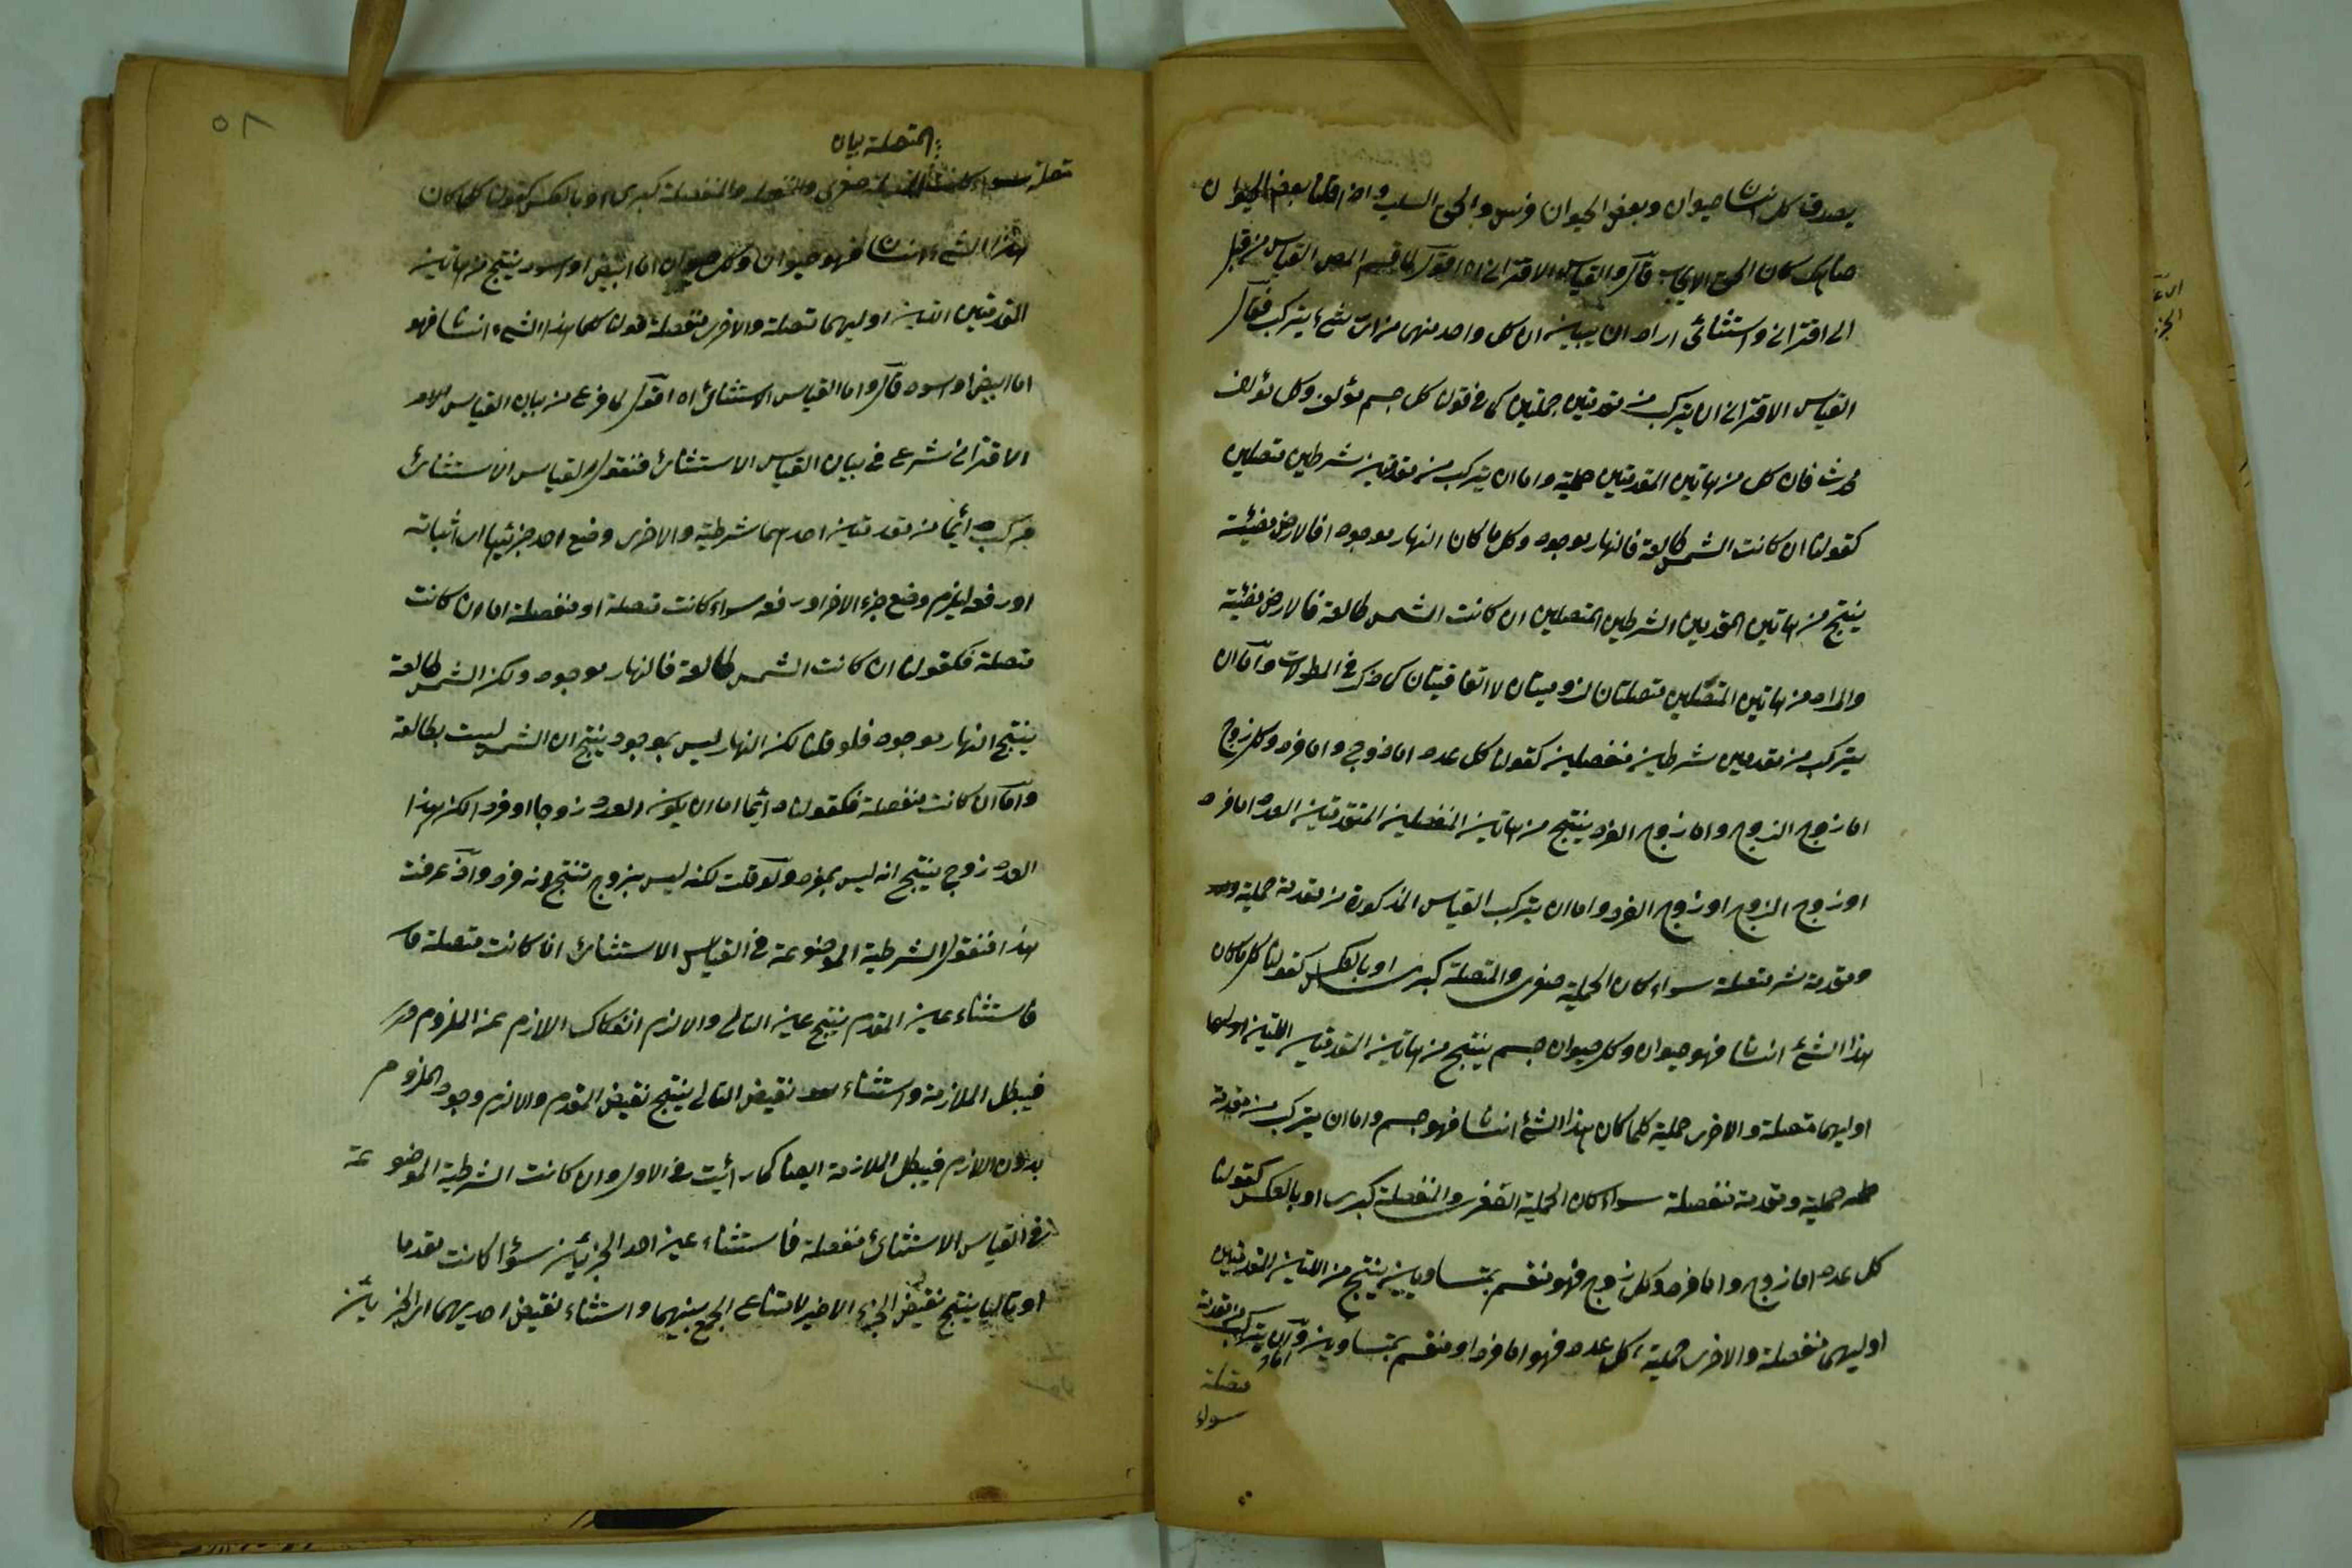 يصدق كل انسان حيوان وبعض الحيوان فرس والحق السلب واذا قلنا بعض الحيوان
صاهل كان الحق الايجاب قال والقياس الاقترانى اه اقول لما قسم المص القياس من قبل
الى اقترانى واستثنائى اراد ان يبين ان كل واحد منهما من اى شىء يتركب فقال
القياس الاقترانى ان يتركب من مقدمتين حمليتين كما فى قولنا كل جسم مؤلف وكل مؤلف
محدث فان كل من هاتين المقدمتين حملية واما ان يتركب من مقدمتين شرطيتين متصلتين
كقولنا ان كانت الشمس طالعة فالنهار موجود وكل ما كان النهار موجودا فالارض مضيئة
ينتج من هاتين المقدمتين الشرطيتين المتصلتين ان كانت الشمس طالعة فالارض مضيئة
والمراد من هاتين المتصلتين متصلتان لزوميتان لا اتفاقيتان كما ذكر فى المطولات واما ان
يتركب من مقدمتين شرطيتين منفصلين كقولنا كل عدد اما زوج واما فرد وكل زوج
اما زوج الزوج واما زوج الفرد ينتج من هاتين المنفصلين المتقدمتين العدد اما فرد
او زوج الزوج او زوج الفرد واما ان يتركب القياس المذكورة من مقدمة حملية
ومقدمة شر متصلة سواء كان الحملية صغرى والمتصلة كبرى او بالعكس كقولنا كل ما كان
هذا الشئ انسانا فهو حيوان وكل حيوان جسم ينتج من هاتين المقدمتين اللتين اوليهما
اوليهما متصلة والاخرى حملية كلما كان هذا الشئ انسانا فهو جسم واما ان يتركب من مقدمة
حملية ومقدمة منفصلة سواء كان الحملية الصغرى والمنفصلة كبرى او بالعكس كقولنا
كل عدد اما زوج واما فرد وكل زوج فهو منقسم بمتساويين ينتج من اللتين المقدمتين
اوليهما منفصلة والاخرى حملية كل عدد فهو اما فرد او منقسم بمتساويين واما ان يتركب من مقدمة
متصلة
سواء
٥٨
المتصلة بيان
متصلة سواء كانت المتصلة صغرى والمنفصلة كبرى او بالعكس كقولنا كلما كان
هذا الشىء انسانا فهو حيوان وكل حيوان اما ابيض او اسود ينتج من هاتين
المقدمتين اللتين اوليهما متصلة والاخرى منفصلة قولنا كلما هذا الشىء انسانا فهو
اما ابيض او اسود قال واما القياس الاستثنائى اه اقول لما فرغ من بيان القياس
الاقترانى شرع فى بيان القياس الاستثنائى فنقول القياس الاستثنائى
مركب دائما من مقدمتين احدهما شرطية والاخرى وضع احد جزئيها اى اثباته
او رفعه ليلزم وضع جزء الاخر او رفعه سواء كانت متصلة او منفصلة اما ان كانت
متصلة فكقولنا ان كانت الشمس طالعة فالنهار موجود ولكن الشمس طالعة
ينتج النهار موجود فلو قلنا لكن النهار ليس بموجود ينتج ان الشمس ليست بطالعة
واما ان كانت منفصلة فكقولنا دائما اما ان يكون العدد زوجا او فردا لكن هذا
العدد زوج ينتج انه ليس بفرد ولو قلت لكنه ليس بزوج تنتج انه فرد واذ عرفت
هذا فنقول الشرطية الموضوعة فى القياس الاستثنائى اذا كانت متصلة
فاستثناء عين المقدم ينتج عين التالى والا لزم انفكاك اللازم عن الملزوم
فيبطل الملازمة واستثناء نقيض التالى ينتج نقيض المقدم والا لزم وجود الملزوم
بدون اللازم فيبطل الملازمة ايضا كما رأيت فى الاول وان كانت الشرطية الموضوعة
فى القياس الاستثنائى منفصلة فاستثناء عين احد الجزئين سواء كانت مقدما
او تاليا ينتج نقيض الجزء الاخير لامتناع الجمع بينهما واستثناء نقيض احديهما اى الجزئين